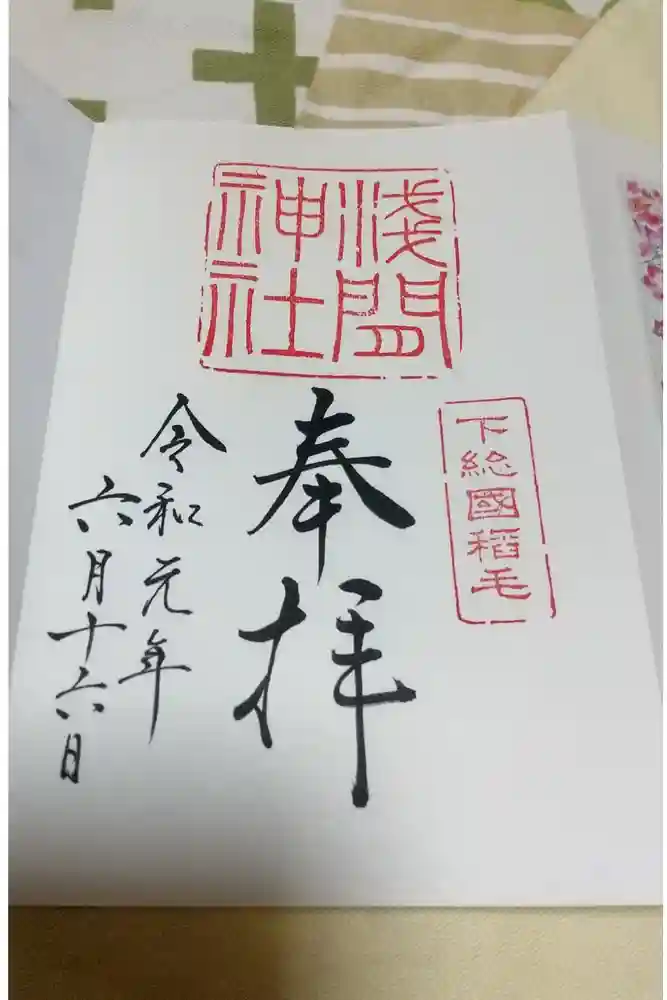 下総國稻毛
淺間
神社
奉拝
令和元年
六月十六日